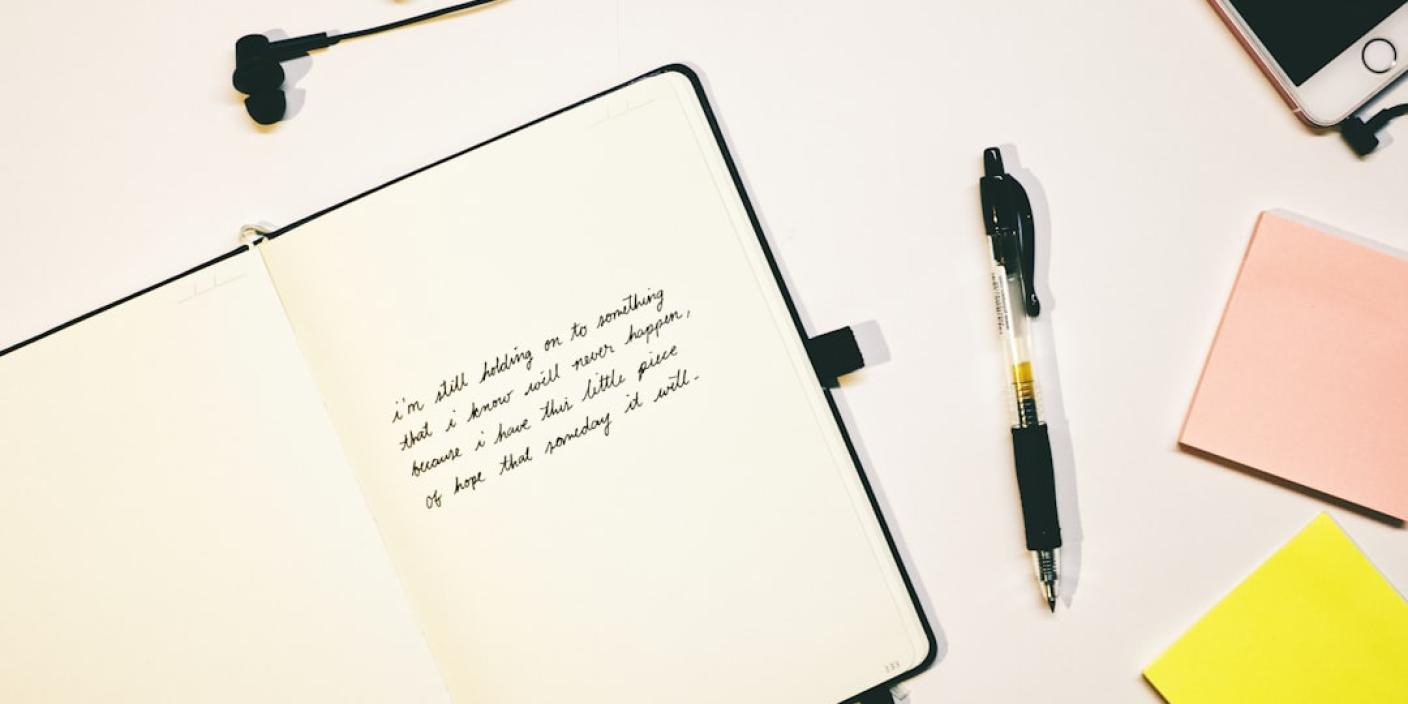 i'm still holding on to something
that i know will never happen,
because i have this little piece
of hope that someday it will.
133